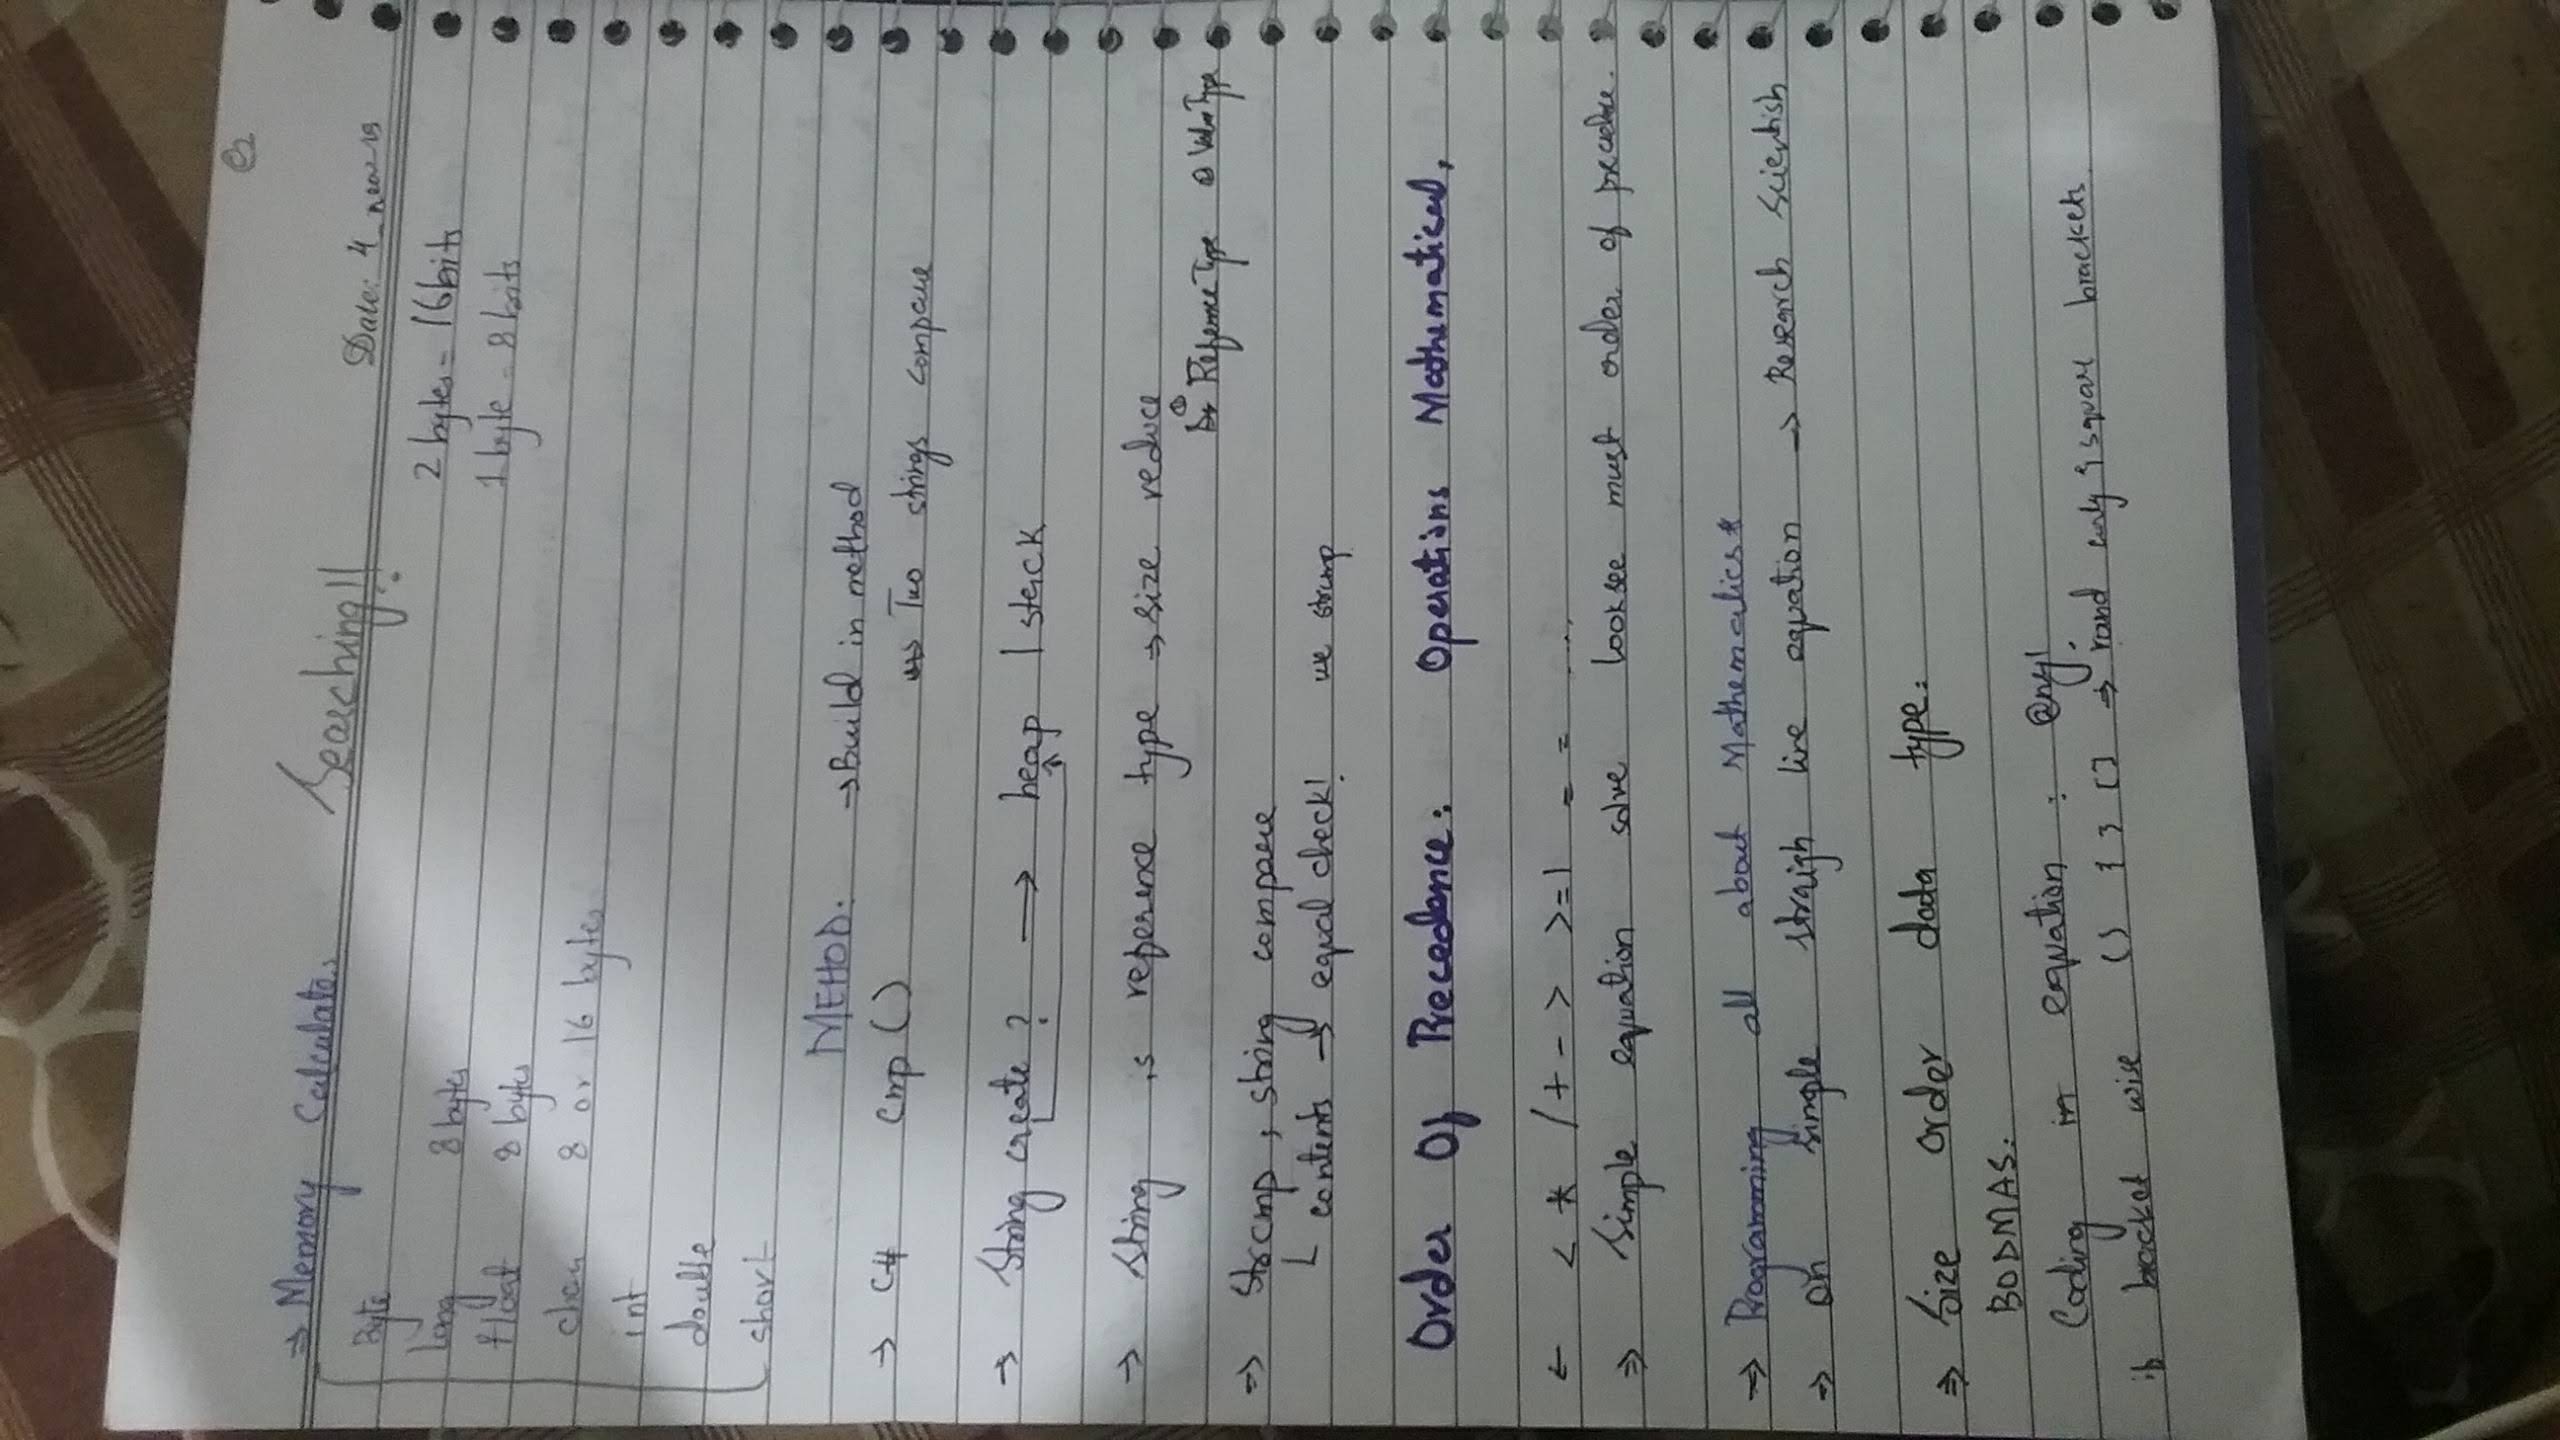 Searching!!
⇒ Memory Calculator Date: 4
Byte 2 bytes = 16 bits
long 8 bytes 1 byte = 8 bits
float 8 bytes
char 8 or 16 bytes
int
double
short
METHOD: → Build in method
→ C# cmp() Two strings compare
→ String create? → heap | stack
→ String is reference type ⇒ size reduce
① Reference Type ② Value Type
⇒ Strcmp, string compare
contents → equal check! we strcmp
Order Of Precedance: Operations Mathematical,
← < * / + - > >= ! = = ....
⇒ Simple equation solve look see must order of precedence.
⇒ Programming all about Mathematics*
⇒ On simple straigh line equation → Research Scientish
⇒ Size order data type:
BODMAS:
Coding in equation: @ny!
if bracket wise () { } [] ⇒ round curly & square brackets